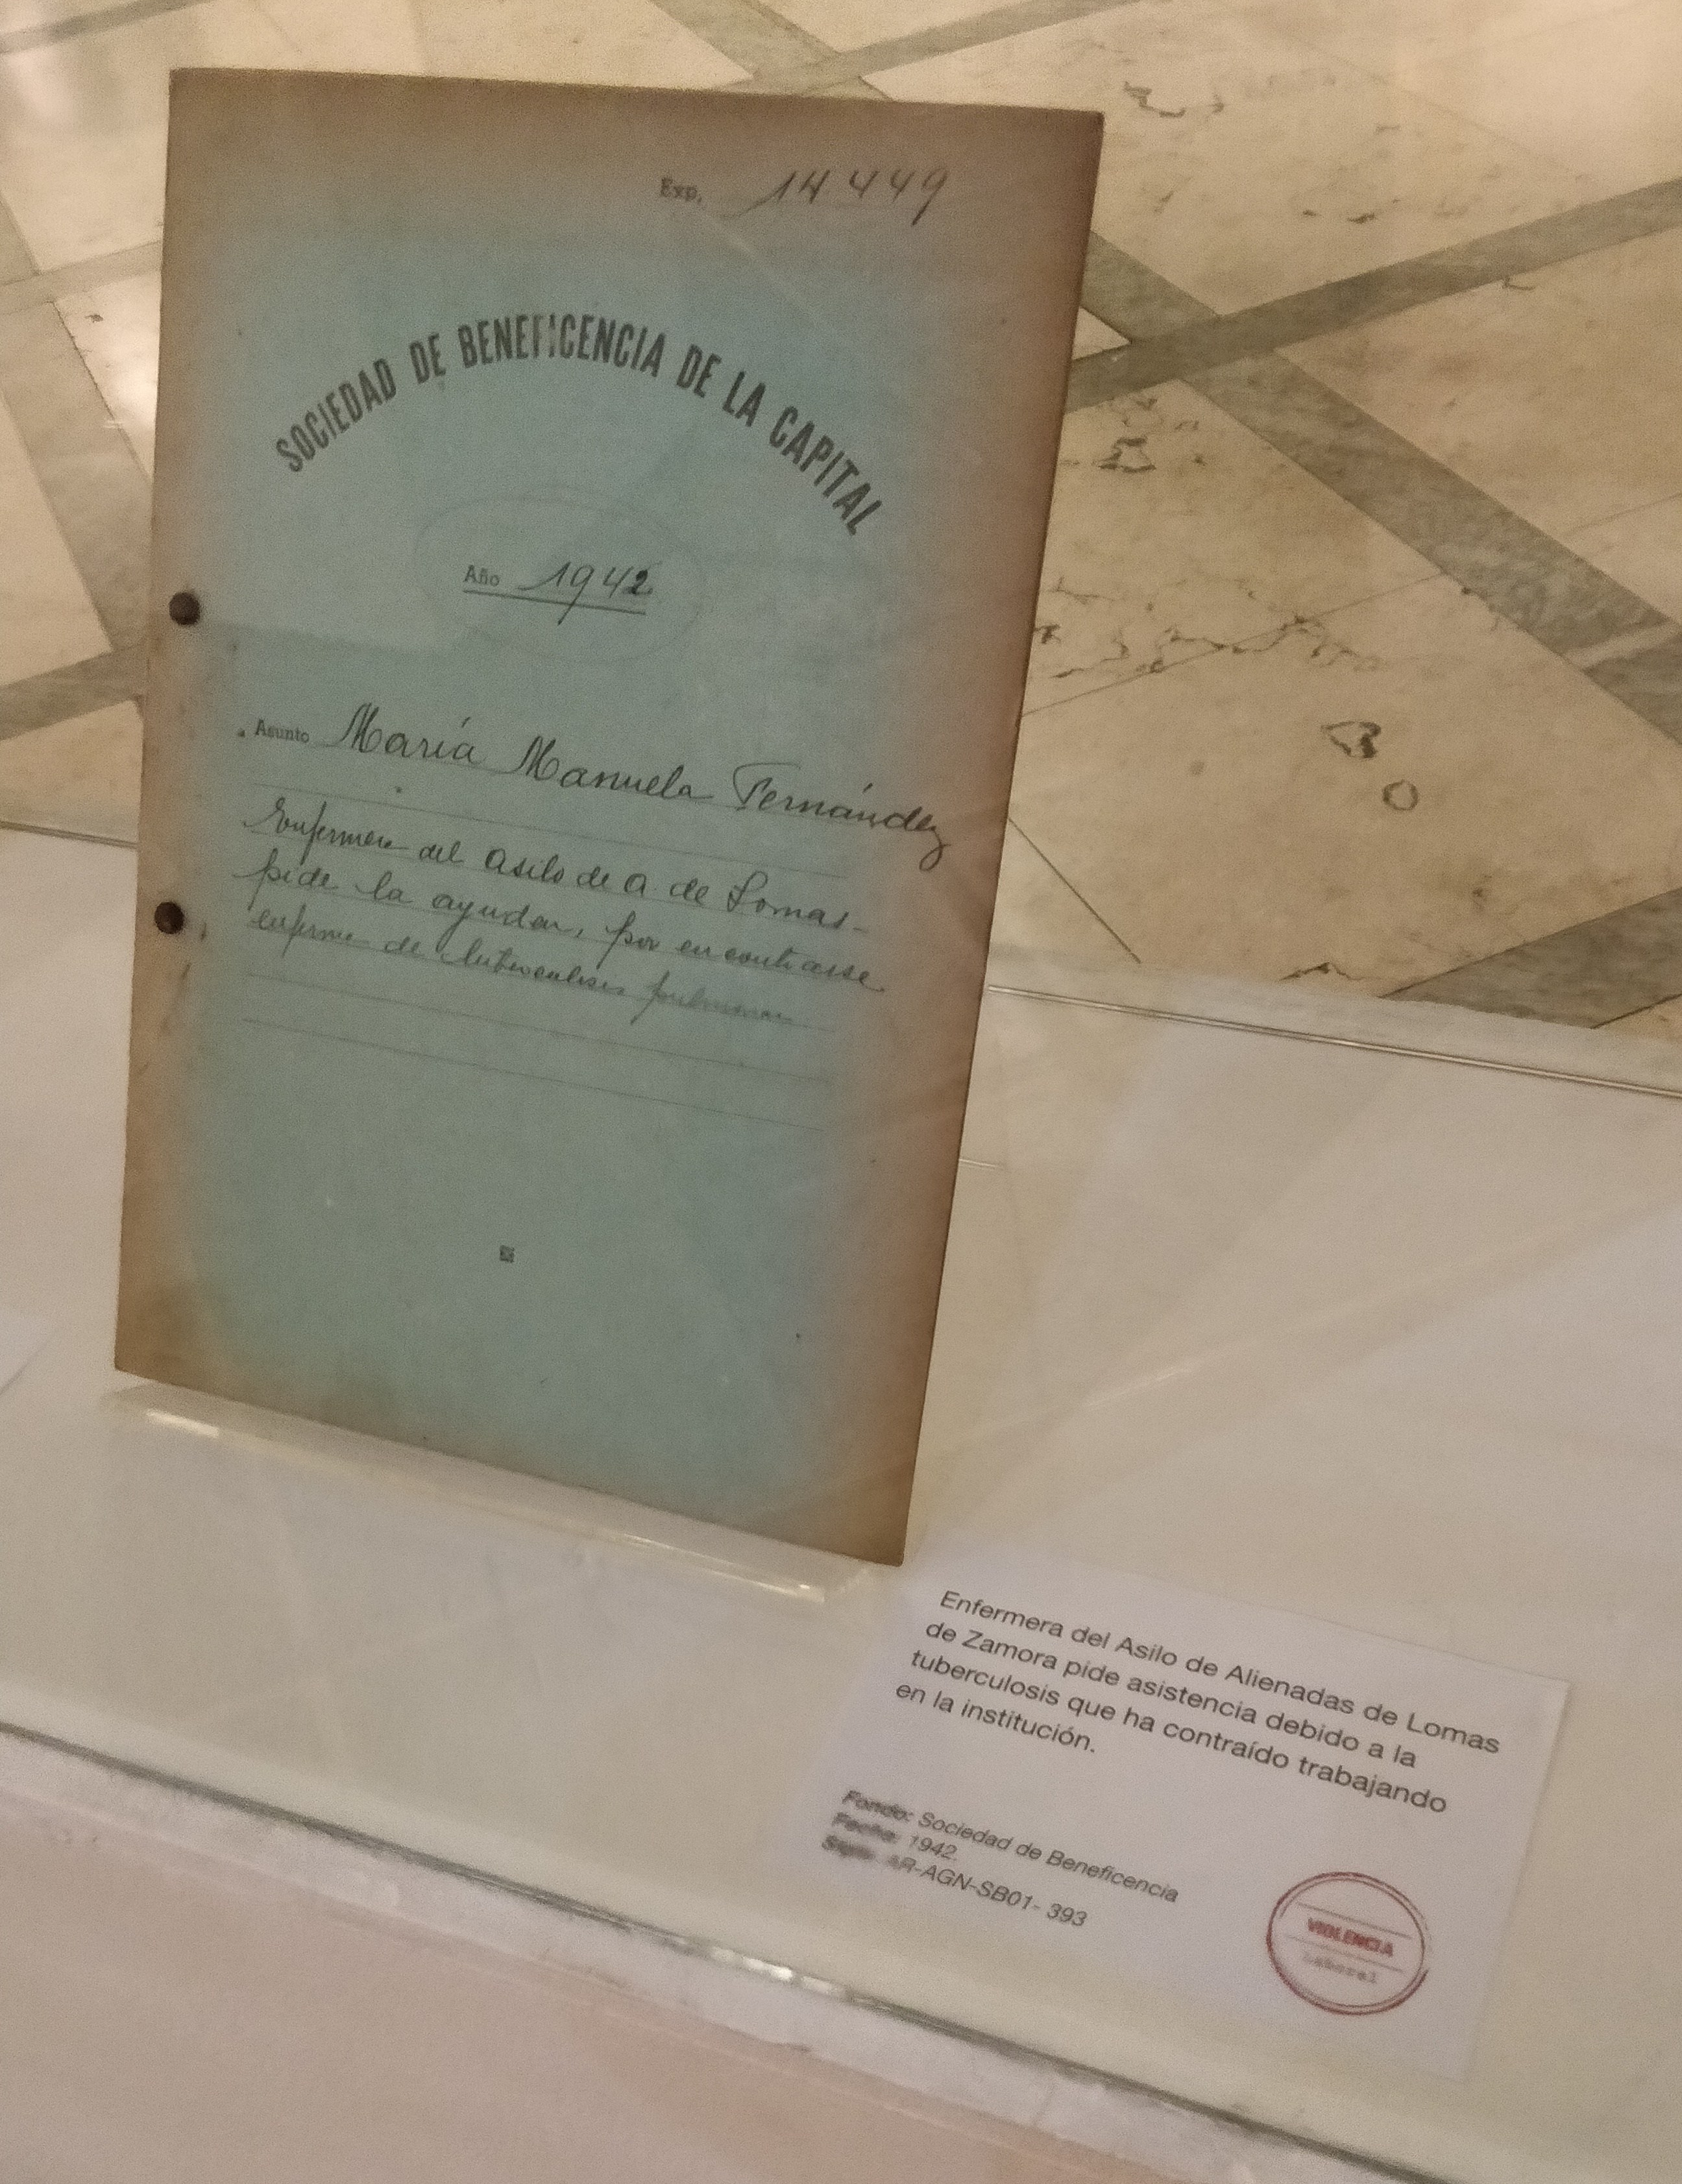 Exp. 14.449
SOCIEDAD DE BENEFICENCIA DE LA CAPITAL
Año 1942
Asunto María Manuela Fernández
Enfermera del Asilo de A. de Lomas-
pide la ayuda, por encontrarse
enferma de tuberculosis pulmonar
Enfermera del Asilo de Alienadas de Lomas
de Zamora pide asistencia debido a la
tuberculosis que ha contraído trabajando
en la institución.
Fondo: Sociedad de Beneficencia
Fecha: 1942.
Sign: AR-AGN-SB01- 393
VIOLENCIA
Laboral